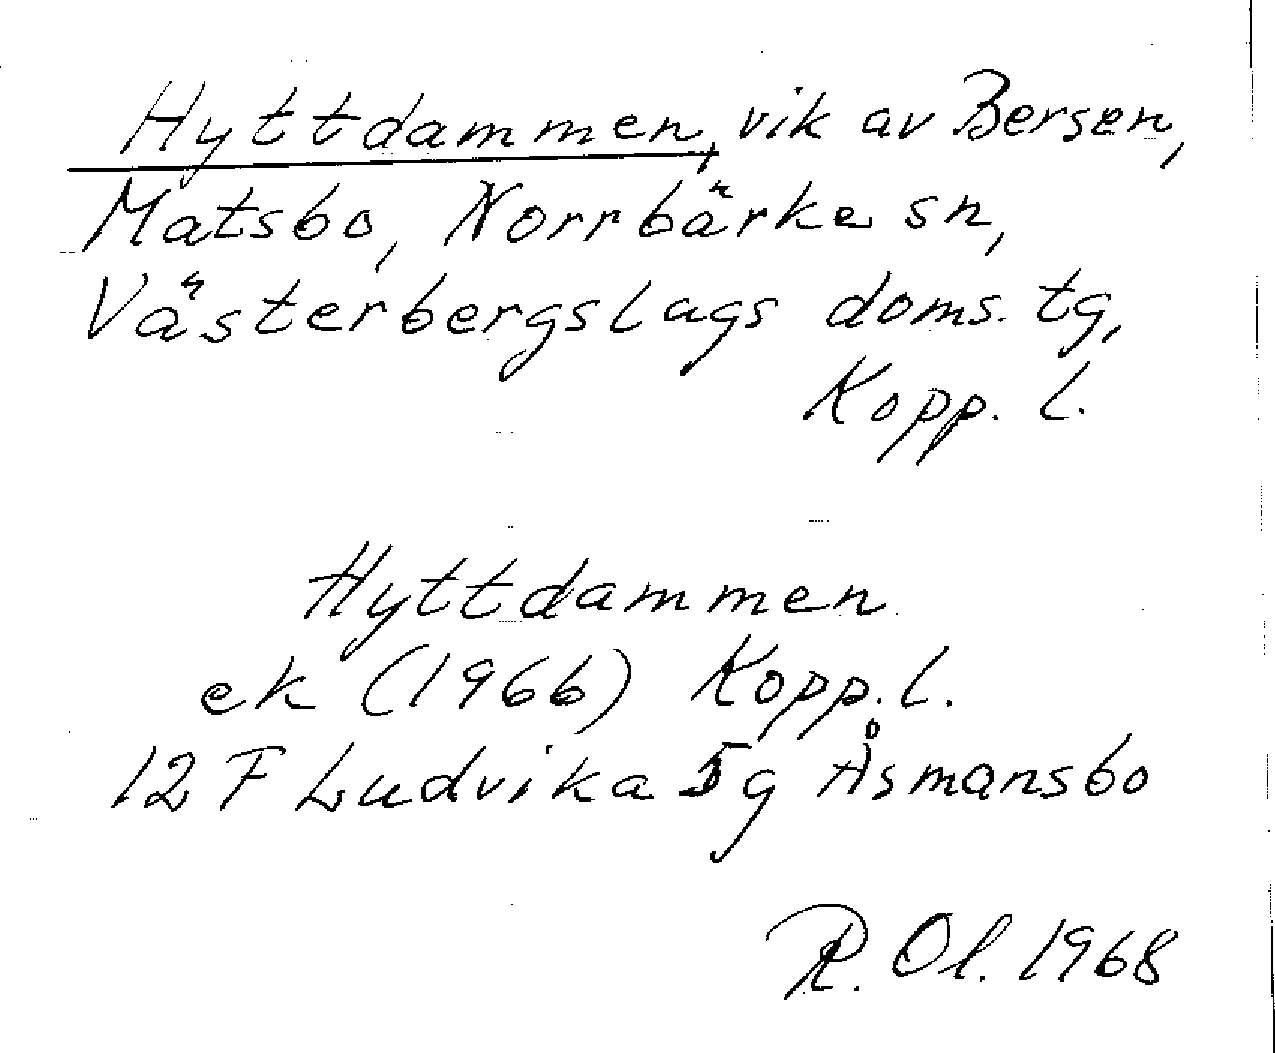 Hyttdammen, vik av Bersen,
Matsbo, Norrbärke sn,
Västerbergslags doms. tg,
Kopp. l.
Hyttdammen
ek (1966) Kopp. l.
12 F Ludvika 5g Åsmansbo
R. Ol. 1968